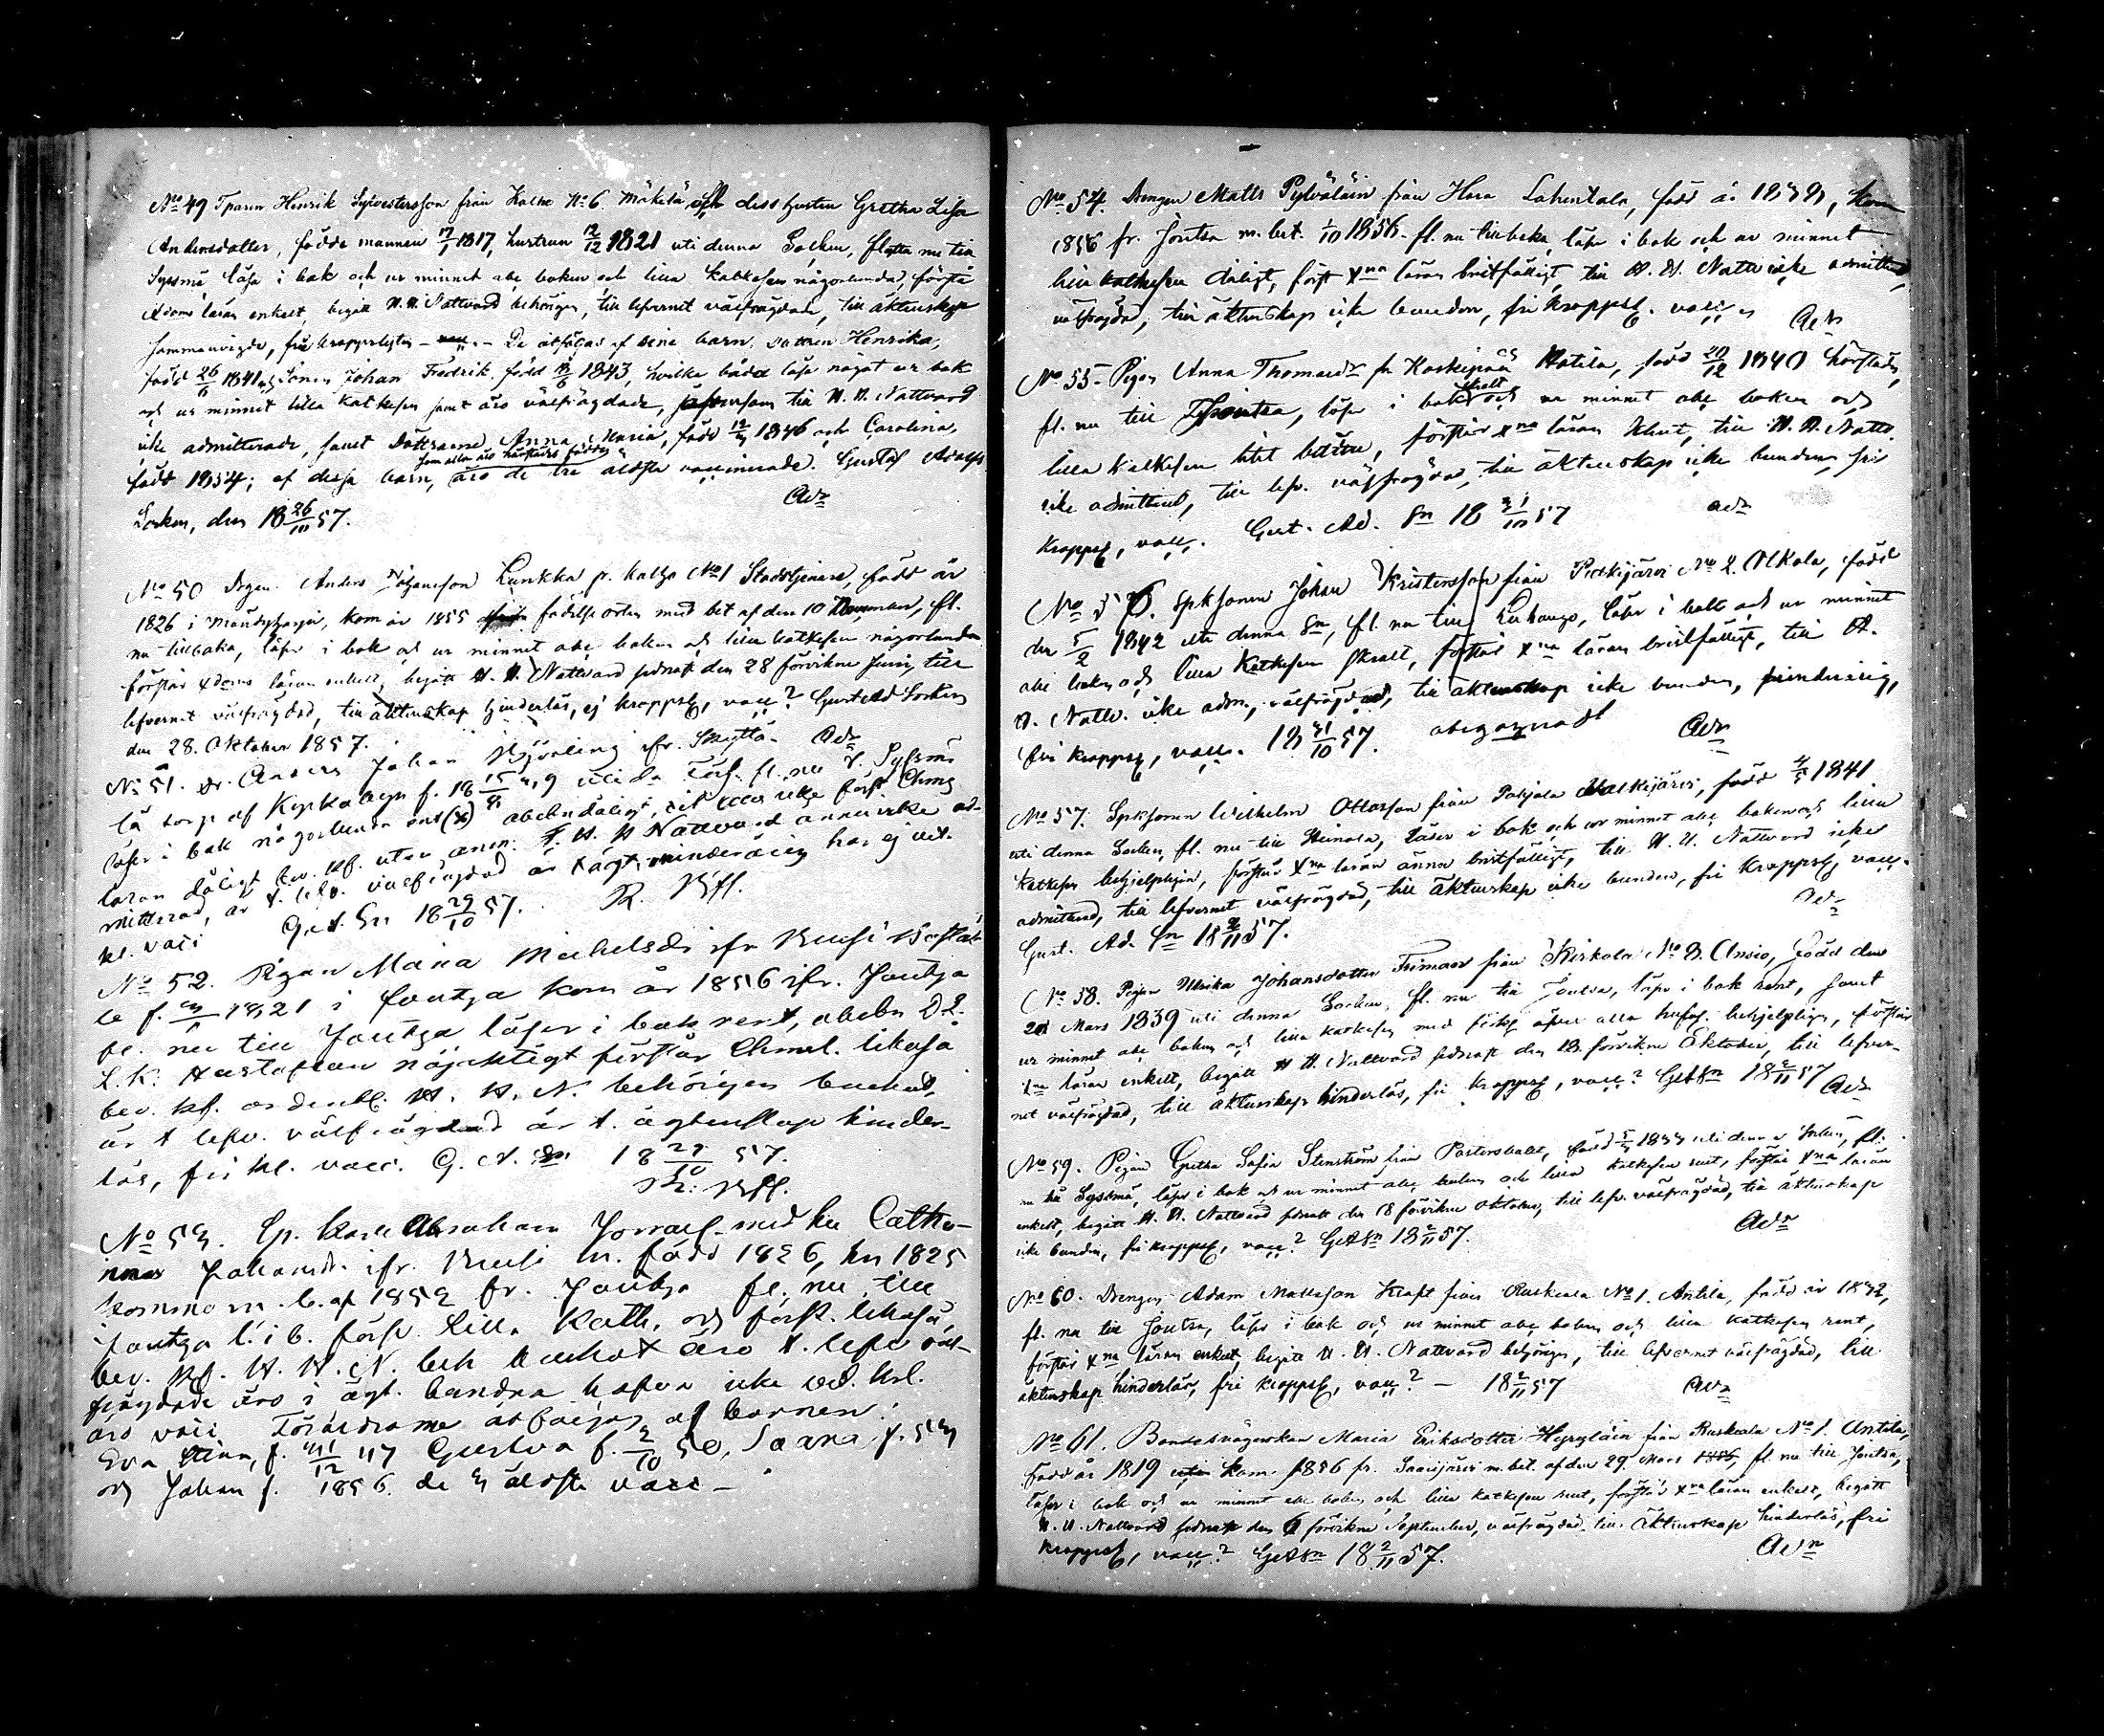 No 49 Tparen Henrik Sylvestersson från Kalho No 6. Mäkelä, och dess hustru Gretha Lisa
Andersdotter, födde mannen 17/1 1817, hustrun 12/12 1821 uti denna Socken, flytta nu till
Syssmä, läsa i bok och ur minnet abc boken och lilla Katkesen någorlunda, förstå
Xdoms läran enkelt, begått H. H. Nattvard behörigen, till lefvernet välfrägdade, till äktenskap
sammanvigde, från kroppslyten – De åtföljas af sine barn, dottren Henrika,
född 26/11 1841, Sonen Johan Fredrik född 1843, hvilka båda läsa något ur bok
och ur minnet lilla Katkesen samt äro välfrägdade, till H. H. Nattvard
icke admitterade, samt Döttrarne Anna Maria, född 1846 och Carolina,
som alla äro härstädes födde
född 1854; af dessa barn, äro de tre äldsta vaccinerade. Gustaf Adolfs
Socken, den 18 26/10 57. Adr
No 50 Drgen Anders Johansson Lunkka fr. Kalho No 1 Stadstjenare, född år
1826 i Mändyharju, kom år 1855 födelse orten med bet af den 10 November, fl.
nu tillbaka, läser i bok och ur minnet abc boken och lilla katkesen någorlunda
förstår Xdoms läran enkelt, begått H. H. Nattvard sednast den 28 förvikne Junii, till
lefvernet välfrägdad, till äktenskap hinderlös, ej kroppsl, vacc? Gust Ad Socken
den 28. Oktober 1857. Adr
No 51. dr. Anders Johan Björling ifr. Skyttä-
lä torp af f. 18 15/ 49 uti da fl. nu t. Syssmä
läser i bok någorlunda abcbn dåligt, icke först Chms
läran dåligt bev. kf. utan anm. T. H. H Nattvard ännu icke ad-
mitterad, är t. lefv. välfrägdad är t ägt. minderårig har ej vet.
kl. vacc Gad. Sn 18 29/10 57. R. Kffl.
No 52. Pigan Maria Michelsdr ifr Kuusi
le f. 1821 i Joutza kom år 1856 ifr. Joutza
fl. nu till Joutza läser i bok rent, abcbn
L.K. Hustaflan nöjaktigt förstår Chml. likaså
bev. kf. ordentl. H. H. N. behörigen buchat,
är t lefv. välfrägdad är t. ägtenskap hinder-
lös, fri kl. vacc. G. A. Sn 18 29/10 57.
R. Kffl.
No 53. Sp. Karl Abraham med hu Catha-
rina Johansdr. ifr. Kuusi m. född 1826, hu 1825
komm m. b. af 1852 fr. Joutza fl. nu till
Joutza l. i b. förs. Lilla Kath. och först. likaså,
bev. kf. H. H. N. beh buchat äro t. lefv väl-
frägdade äro i ägt. bundna hafva icke ved. kl.
äro vacc. Föräldrarne åtföljas af barnen:
Eva Stina, f. /12 47 Gustva f. 2/10 50, Saara f. 53
och Johan f. 1856. de 3 äldsta vacc –
No 54. Drengen Matts Pylväläin från Hara Lahentala, född år 1838, kom
1856 fr. Joutsa m. bet. 1/10 1856. fl. nu tillbaka, läser i bok och ur minnet
lilla katkesen dåligt, först Xna läran bristfälligt, till H. H. Nattv icke admitterad,
välfrägdad, till äktenskap icke bunden, fri kroppsl. vacc. Adr
No 55. Pigan Anna Thomasdr fr Koskipää Hatila, född 20/12 1840 härstädes,
fl. nu till Joutsa, läser i bok skralt och ur minnet abc boken och
lilla Katkesen litet bättre, förstår Xna läran klent, till H. H. Nattv.
icke admitterad, till lefv. välfrägdad, till äktenskap icke bunden, fri
kroppsl, vacc. Gust. Ad. Sn 18 31/10 57 Adr
No 56. Spksonen Johan Kristersson från Pitkijärvi No 2. Olkola, född
den 5/2 1842 uti denna Sn, fl. nu till Luhango, läser i bok och ur minnet
abc boken och lilla Katkesen skralt, förstår Xna läran bristfälligt, till H.
H. Nattv. icke adm., välfrägdad, till äktenskap icke bunden, minderårig,
fri kroppsl, vacc. 18 31/10 57. Adr
No 57. Spksonen Wilhelm Ottosson från Pohjola Walkijärvi, född 4/5 1841
uti denna Socken, fl. nu till Heinola, läser i bok och ur minnet abc boken och lilla
Katkesen behjelpligen, förstår Xna läran ännu bristfälligt, till H. H. Nattvard icke
admitterad, till lefvernet välfrägdad, till äktenskap icke bunden, fri kroppsl, vacc.
Gust. Ad. Sn 18 2/11 57. Adr
No 58. Pigan Ulrika Johansdotter Friman från Kirkola No 3. Ansio, född den
21 Mars 1839 uti denna Socken, fl. nu till Joutsa, läser i bok rent, samt
ur minnet abc boken och lilla katkesen med behjelpligen, förstår
Xna läran enkelt, begått H H. Nattvard sednast den 18. förvikne Oktober, till lefver-
net välfrägdad, till äktenskap hinderlös, fri kroppsl, vacc? GAdSn 18 2/11 57 Adr
No 59. Pigan Gretha Sofia Stenström från Pastorsbolet, född 1833 uti denna Socken, fl.
nu till Syssmä, läser i bok och ur minnet abc boken och lilla Katkesen rent, förstår Xna läran
enkelt, begått H. H. Nattvard sednast den 18 förvikne Oktober, till lefv. välfrägdad, till äktenskap
icke bunden, fri kroppsl, vacc? GAdSn 18 2/11 57. Adr
No 60. Drengen Adam Mattsson Kraft från Ruskeala No 1. Antila, född år 1832,
fl. nu till Joutsa, läser i bok och ur minnet abc boken och lilla katkesen rent,
förstår Xna läran enkelt, begått H. H. Nattvard behörigen, till lefvernet välfrägdad, till
äktenskap hinderlös, fri kroppsl, vacc? – 18 2/11 57 Adr
No 61. Bondesvägerskan Maria Eriksdotter Hyryläin från Ruskeala No 1. Antila,
född år 1819 kom 1856 fr. Saarijärvi m. bet. af den 29. Mars 1856, fl. nu till Joutsa,
läser i bok och ur minnet abc boken och lilla katkesen rent, förstår Xna läran enkelt, begått
H. H. Nattvard sednast den 6 förvikne September, välfrägdad, till äktenskap hinderlös, fri
kroppsl, vacc? GAdSn 18 2/11 57. Adr